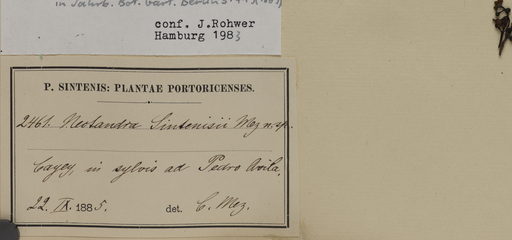 in Jahrb. Bot. Gart. Berlin
conf. J.Rohwer
Hamburg 1983
P. SINTENIS: PLANTAE PORTORICENSES.
2461. Nectandra Sintenisii Mez n. sp.
Cayey, in sylvis ad Pedro Avila,
22. IX. 1885. det. C. Mez.